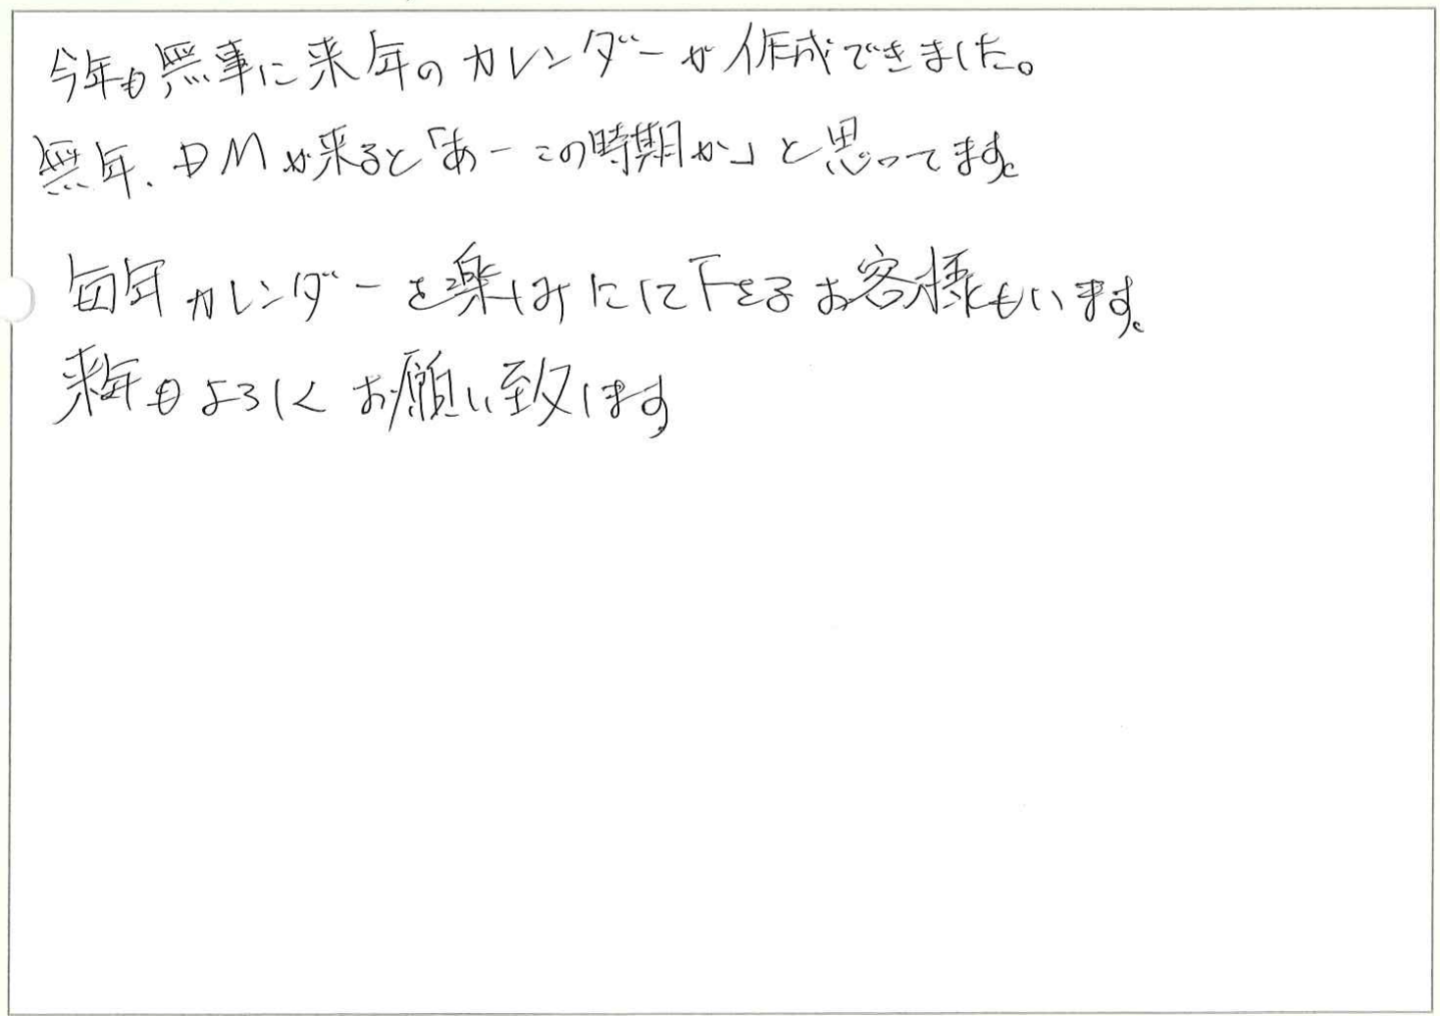 今年も無事に来年のカレンダーが作成できました。
無年、DMが来ると「あーこの時期か」と思ってます。
毎年カレンダーを楽しみにして下さるお客様もいます。
来年もよろしくお願い致します